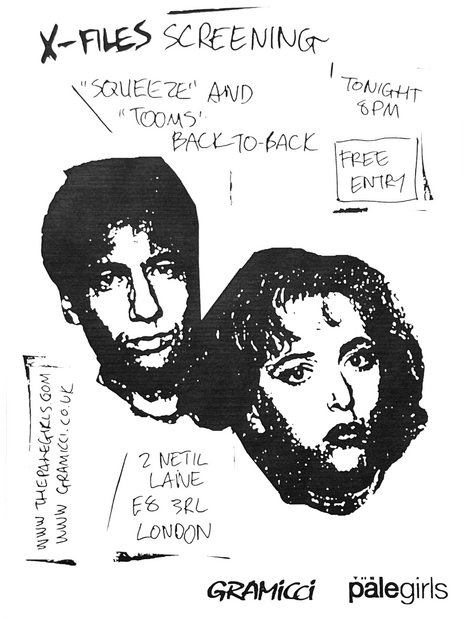 X-FILES SCREENING
"SQUEEZE" AND
"TOOMS"
BACK-TO-BACK
TONIGHT
8PM
FREE
ENTRY
WWW THEPALEGIRLS.COM
WWW GRAMICCI.CO.UK
2 NETIL
LANE
E8 3RL
LONDON
GRAMICCI
THE
palegirls